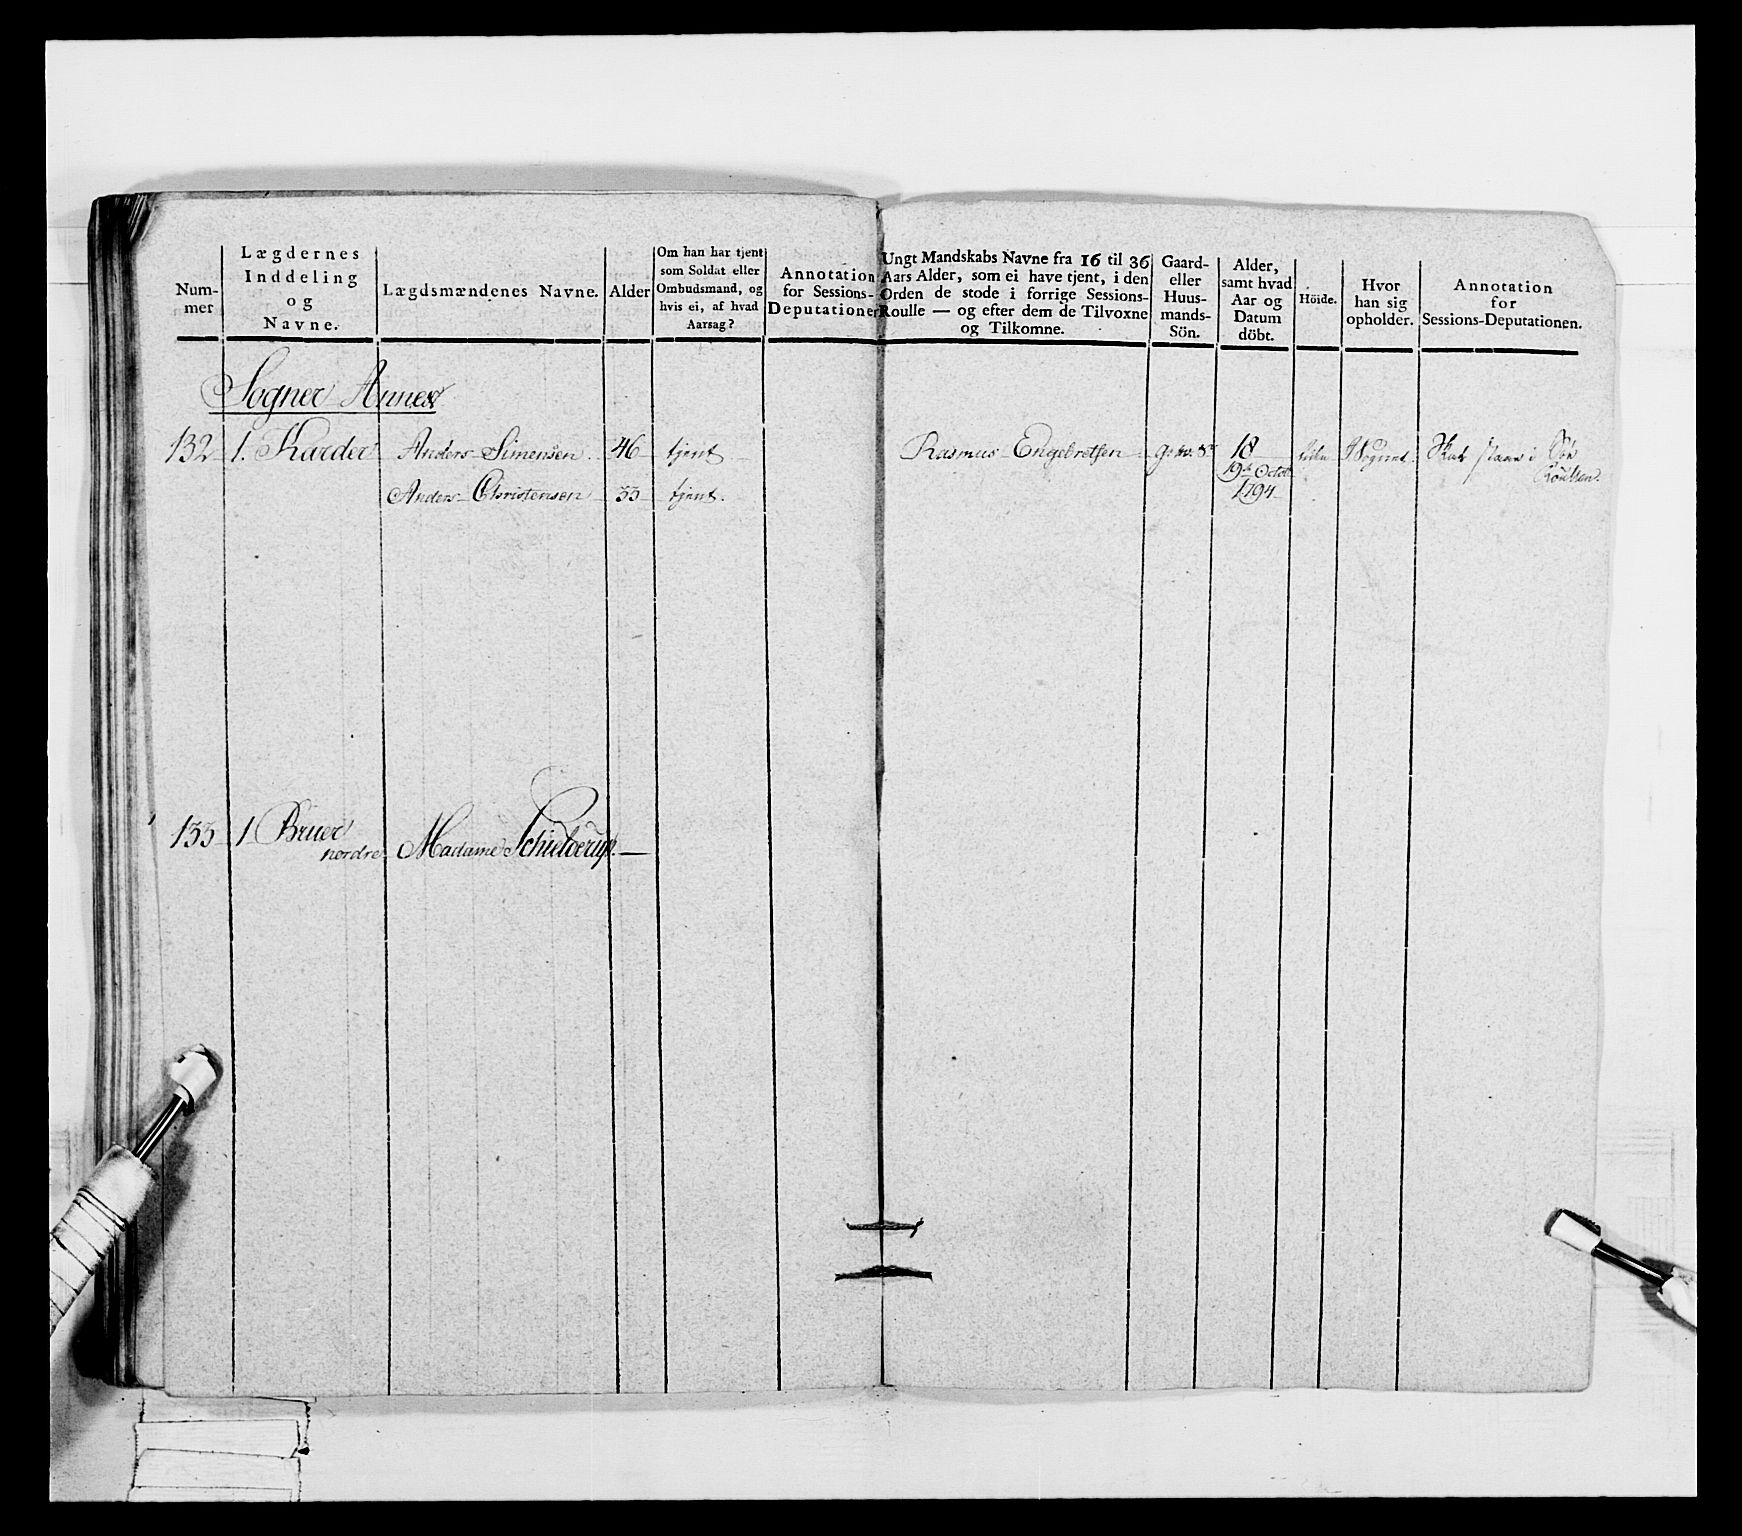 Num-
mer
Lægdernes
Inddeling
og
Navne.
Lægdsmændenes Navne.
Alder
Om han har tjent
som Soldat eller
Ombudsmand, og
hvis ei, af hvad
Aarsag?
Annotation
for Sessions-
Deputationen
Ungt Mandskabs Navne fra 16 til 36
Aars Alder, som ei have tjent, i den
Orden de stode i forrige Sessions-
Roulle — og efter dem de Tilvoxne
og Tilkomne.
Gaard-
eller
Huus-
mands-
Sön.
Alder,
samt hvad
Aar og
Datum
döbt.
Höide.
Hvor
han sig
opholder.
Annotation
for
Sessions-Deputationen.
Sogner Annex
132 1. Karder Anders Simensen. 46 tjent Rasmus Engebretsen 18
19de Octobr
Anders Christensen 33 tjent. 1794
133 1 Bruer
nordre Madame Schielderup. —